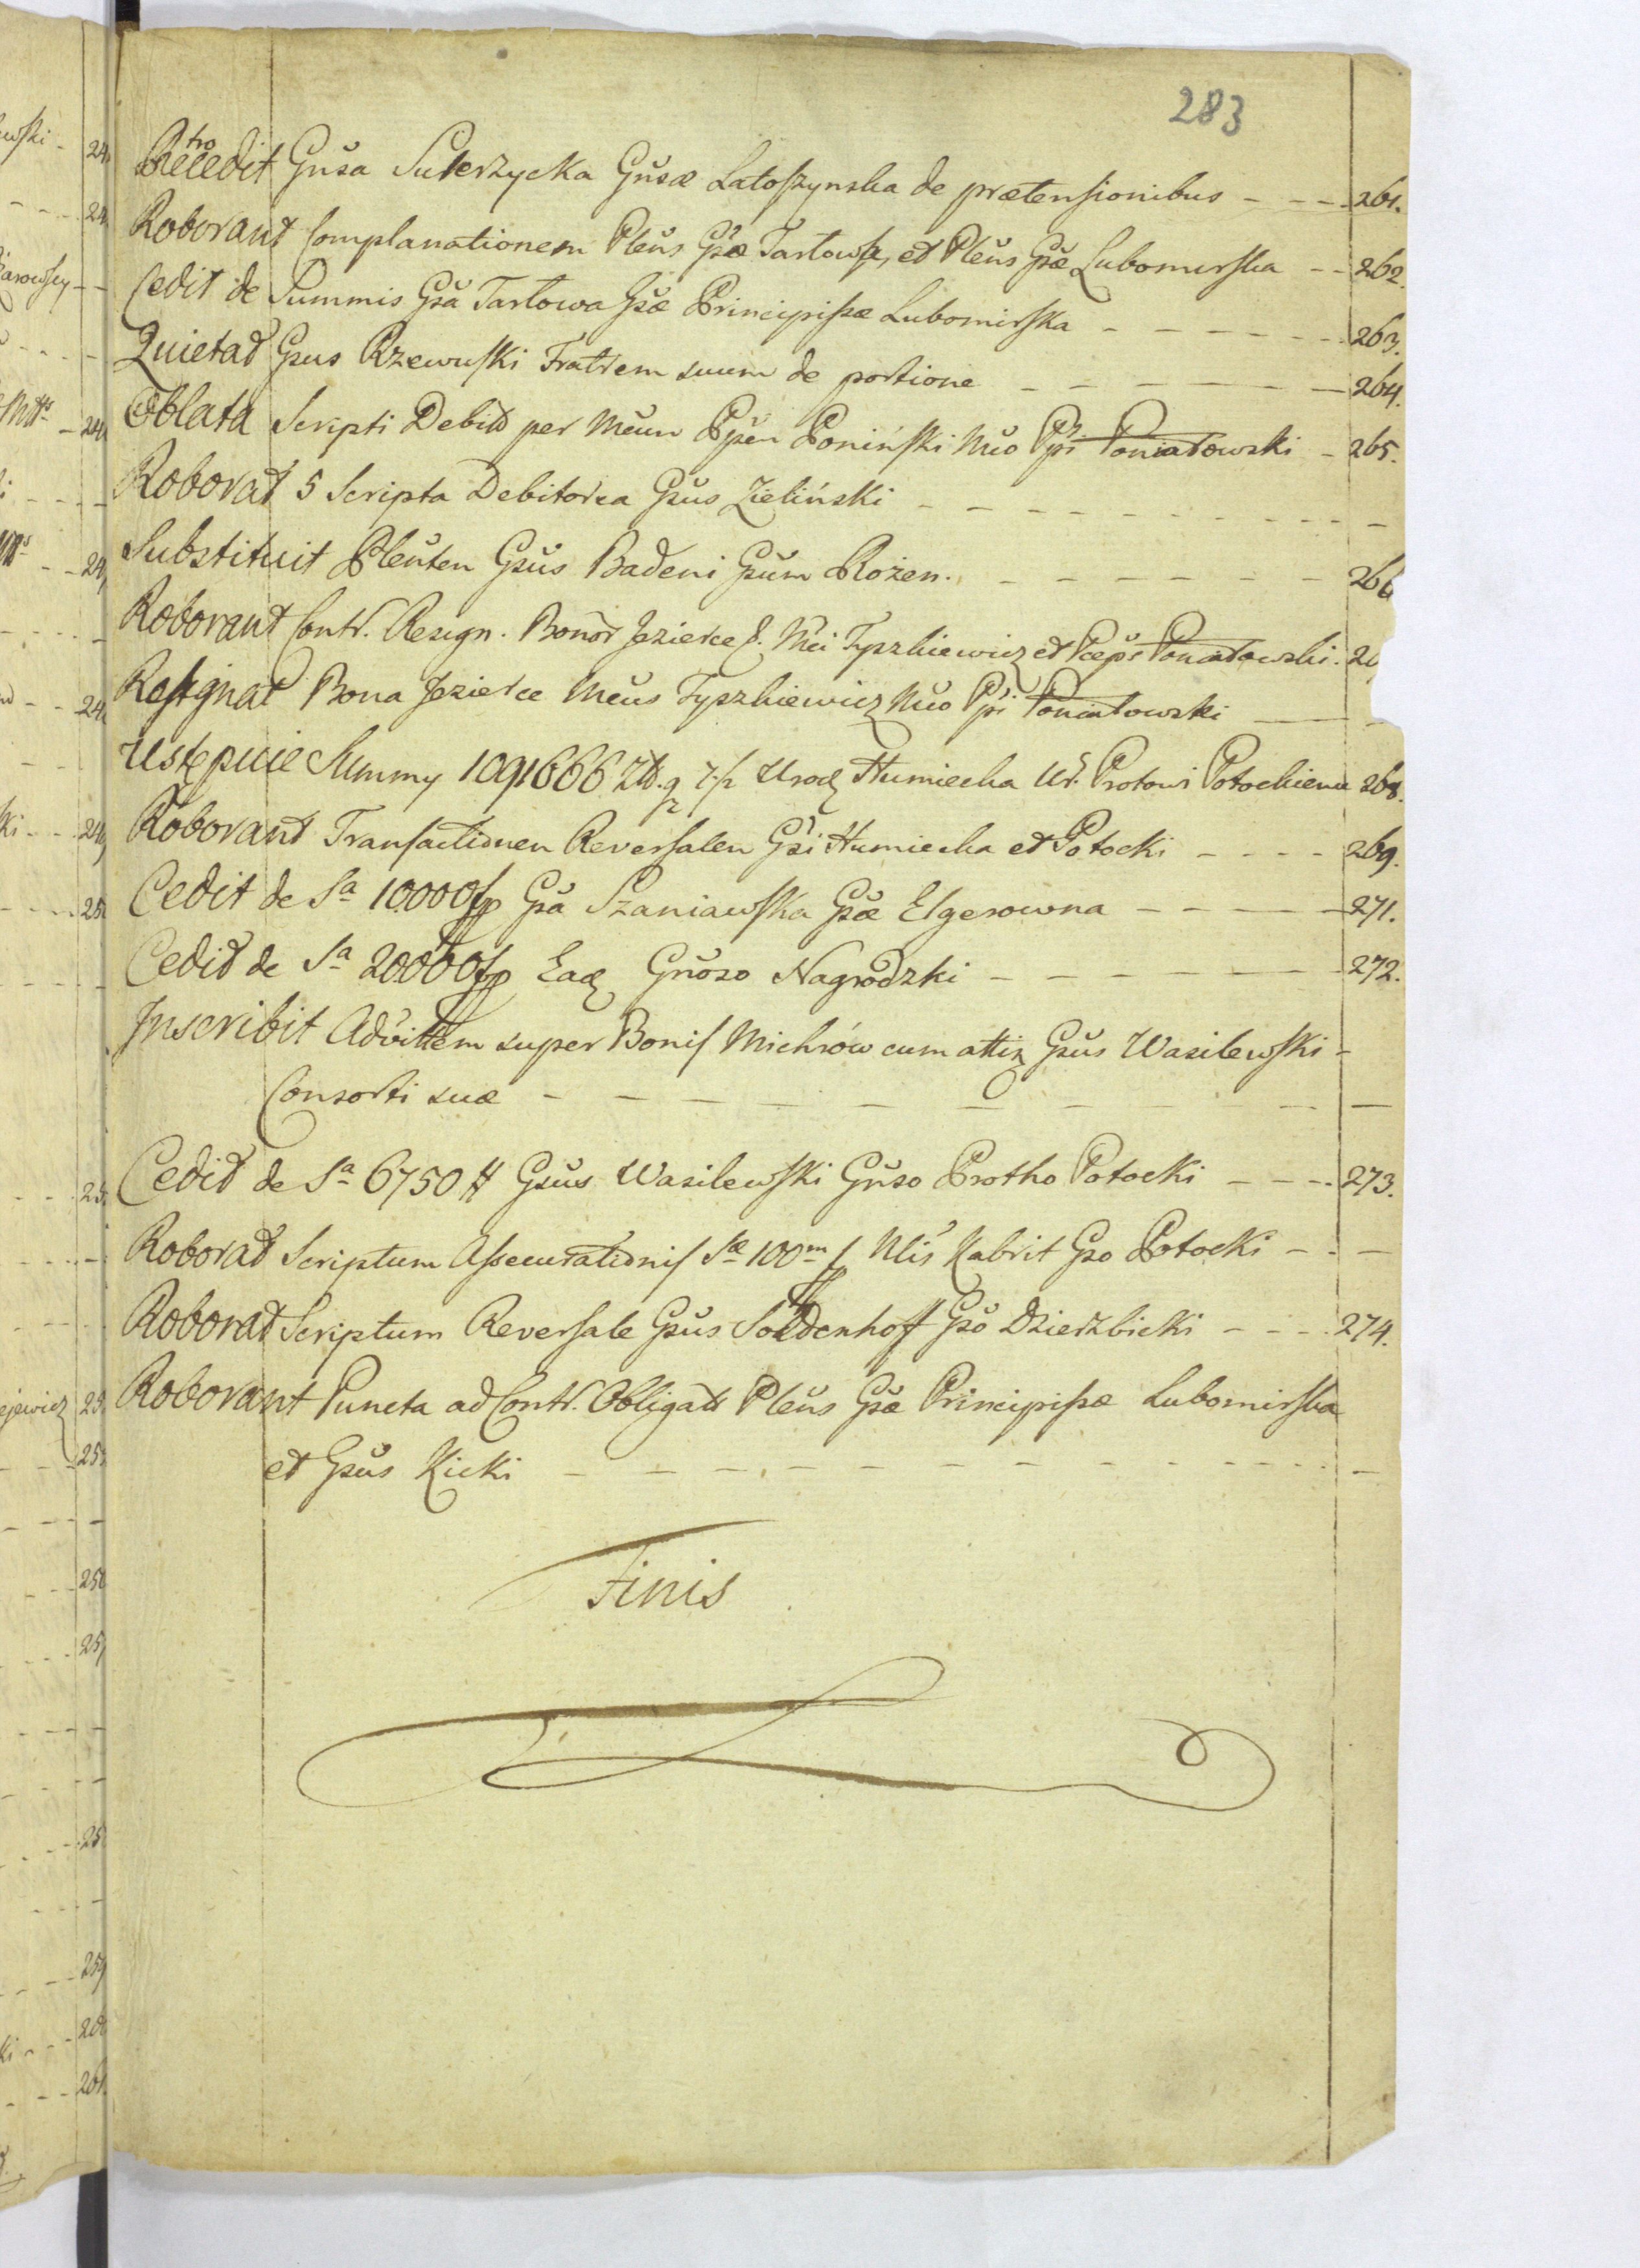 283
Retrocedit Gnsa Suterzycka Gnsæ Latoszynska de prætensionibus - - - 261.
Roborant Complanationem Plěns Gsæ Tarłowa, et Plěns Gsæ Lubomirska - - 262.
Cedit de Summis Gsa Tarłowa Gsæ Principissæ Lubomirska - - - - - - 263.
Quietat Gsus Rzewuski Fratrem suum de portione - - - - - 264.
Oblata Scripti Debit per Mcum Ppěn Poniński Mco Ppi Poniatowski - 265.
Roborat 5 Scripta Debitoria Gsus Zieliński - - - - - - - - - -
Substituit Plenten Gsus Badeni Gsum Rożen. - - - - - - 266
Roborant Contr. Resign. Bonor Jezierce E. Mci Tyszkiewicz et Pceps Poniatowski. 26
Resignat Bona Jezierce Mcus Tyszkiewicz Mco Ppi Poniatowski - -
Ustępuie Summy 1091666 Złt. Urodz Humiecka Ur. Protowi Potockiemu 268.
Roborant Transactionen Reversalen Gsi Humiecka et Potocki - - - - 269.
Cedit de Sa 10000 fp Gsa Szaniawska Gsæ Elgerowna - - - - - 271.
Cedit de Sa 20000 fp Ead Gnoso Nagrodzki - - - - - - 272.
Inscribit Advittem super Bonis Michrów cum attiz Gsus Wasilewski -
Consorti suæ - - - - - - - - - - -
Cedit de Sa 6750 # Gsus Wasilewski Gnso Protho Potocki - - - - 273.
Roborat Scriptum Assecurationis Sæ 100m f Nlis Kabrit Gso Potocki - - -
Roborat Scriptum Reversale Gsus Soldenhoff Gso Dzierzbicki - - - - 274.
Roborant Puncta ad Contr. Obligatt Plěns Gsæ Principissæ Lubomirska
et Gsus Kicki - - - - - - - - - - - - -
Finis